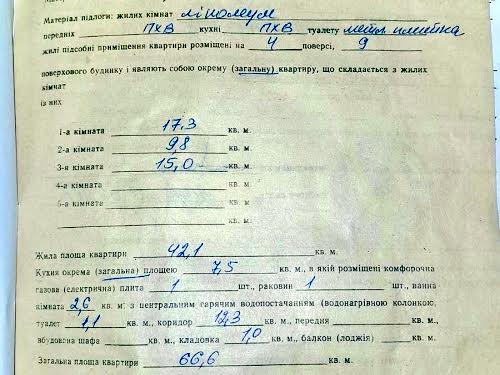 Матеріал підлоги: жилих кімнат лінолеум
передніх ПХВ кухні ПХВ туалету метл плитка
жилі підсобні приміщення квартири розміщені на 4 поверсі, 9
поверхового будинку і являють собою окрему (загальну) квартиру, що складається з жилих
кімнат
із них
1-а кімната 17,3 кв. м.
2-а кімната 9,8 кв. м.
3-я кімната 15,0 кв. м.
4-а кімната кв. м.
5-а кімната кв. м.
кв. м.
Жила площа квартири 42,1 кв. м.
Кухня окрема (загальна) площею 7,5 кв. м., в якій розміщені комфорочна
газова (електрична) плита 1 шт., раковин 1 шт., ванна
кімната 2,6 кв. м. з центральним гарячим водопостачанням (водонагрівною колонкою
туалет 1,1 кв. м., коридор 12,3 кв. м., передня кв. м.,
вбудована шафа кв. м., кладовка 1,0 кв. м., балкон (лоджія) кв. м.
Загальна площа квартири 66,6 кв. м.